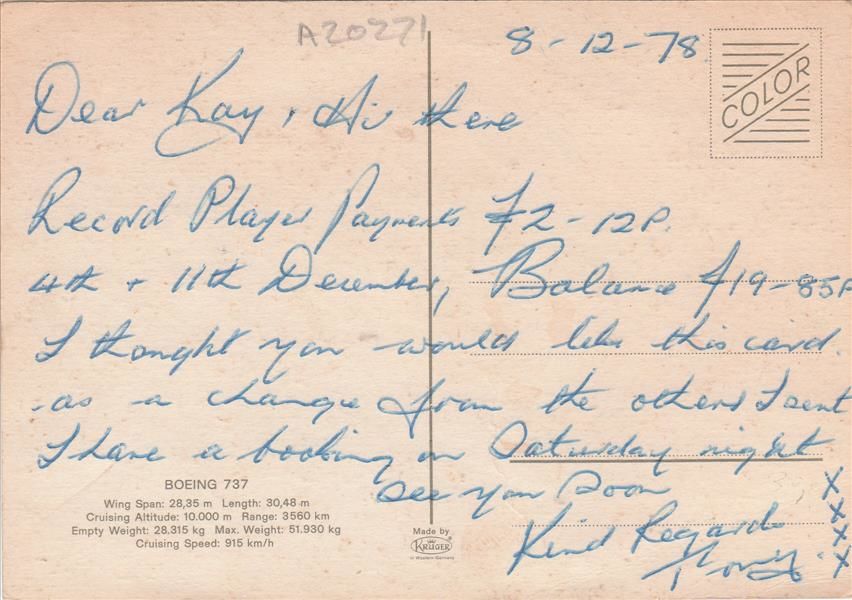 A20271
8-12-78.
COLOR
Dear Kay, Hi there
Record Player Payments £2-12P.
4th + 11th December, Balance £19-85P
I thought you would like this card.
-as a change from the others I sent
I have a booking on Saturday night
see you soon
Kind Regards
X
X
X
X
BOEING 737
Wing Span: 28,35 m Length: 30,48 m
Cruising Altitude: 10.000 m Range: 3560 km
Empty Weight: 28.315 kg Max. Weight: 51.930 kg
Cruising Speed: 915 km/h
Made by
KRÜGER
in Western Germany